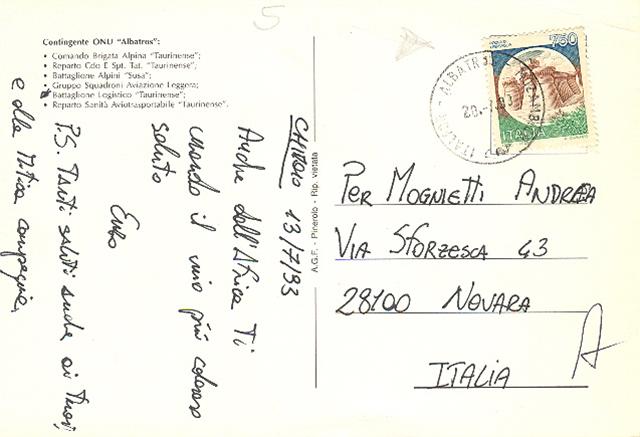 Contingente ONU "Albatros":
• Comando Brigata Alpina "Taurinense";
• Reparto Cdo E Spt. Tat. "Taurinense";
• Battaglione Alpini "Susa";
• Gruppo Squadroni Aviazione Leggera;
• Battaglione Logistico "Taurinense";
• Reparto Sanità Aviotrasportabile "Taurinense".
CHIMOIO 13/7/93
Anche dall'Africa Ti
mando il mio più caloroso
saluto
P.S. Tanti saluti anche ai Tuoi,
e alla Mitica compagnia.
A.G.F. - Pinerolo - Rip. vietata
5
750
ITALIA
PER MOGNIETTI ANDREA
VIA SFORZESCA 43
28100 NOVARA
ITALIA
A